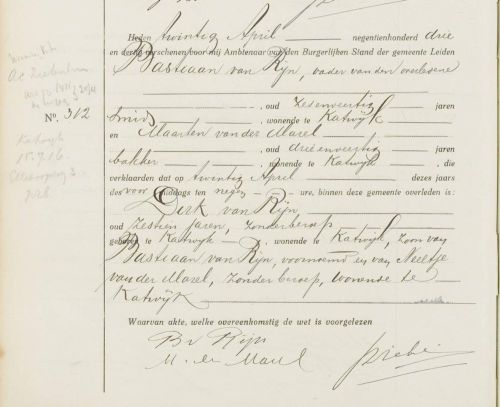 Heden twintig April negentienhonderd drie
en dertig verschenen voor mij Ambtenaar van den Burgerlijken Stand der gemeente Leiden
Bastiaan van Rijn, vader van den overledene
, oud zesenveertig jaren
smid, wonende te Katwijk
en Maarten van der Marel
, oud drieenveertig jaren
bakker, wonende te Katwijk, die
verklaarden dat op twintig April dezes jaars
des voormiddags ten negen ure, binnen deze gemeente overleden is:
Dirk van Rijn
oud zestien jaren, zonder beroep
geboren te Katwijk, wonende te Katwijk, zoon van
Bastiaan van Rijn, voornoemd en van Neeltje
van der Marel, zonder beroep, wonende te
Katwijk
Waarvan akte, welke overeenkomstig de wet is voorgelezen
B v Rijn
M. v. der Marel
No. 312
Katwijk
15.7.16.